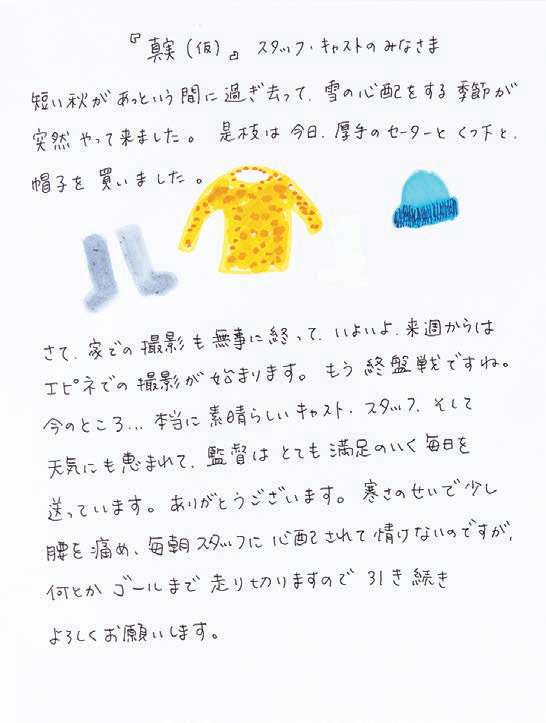 『真実（仮）』 スタッフ・キャストのみなさま
短い秋があっという間に過ぎ去って、雪の心配をする季節が
突然やって来ました。是枝は今日、厚手のセーターとくつ下と、
帽子を買いました。
さて、家での撮影も無事に終って、いよいよ、来週からは
エピネでの撮影が始まります。もう終盤戦ですね。
今のところ…本当に素晴らしいキャスト、スタッフ、そして
天気にも恵まれて、監督はとても満足のいく毎日を
送っています。ありがとうございます。寒さのせいで少し
腰を痛め、毎朝スタッフに心配されて情けないのですが、
何とかゴールまで走り切りますので引き続き
よろしくお願いします。